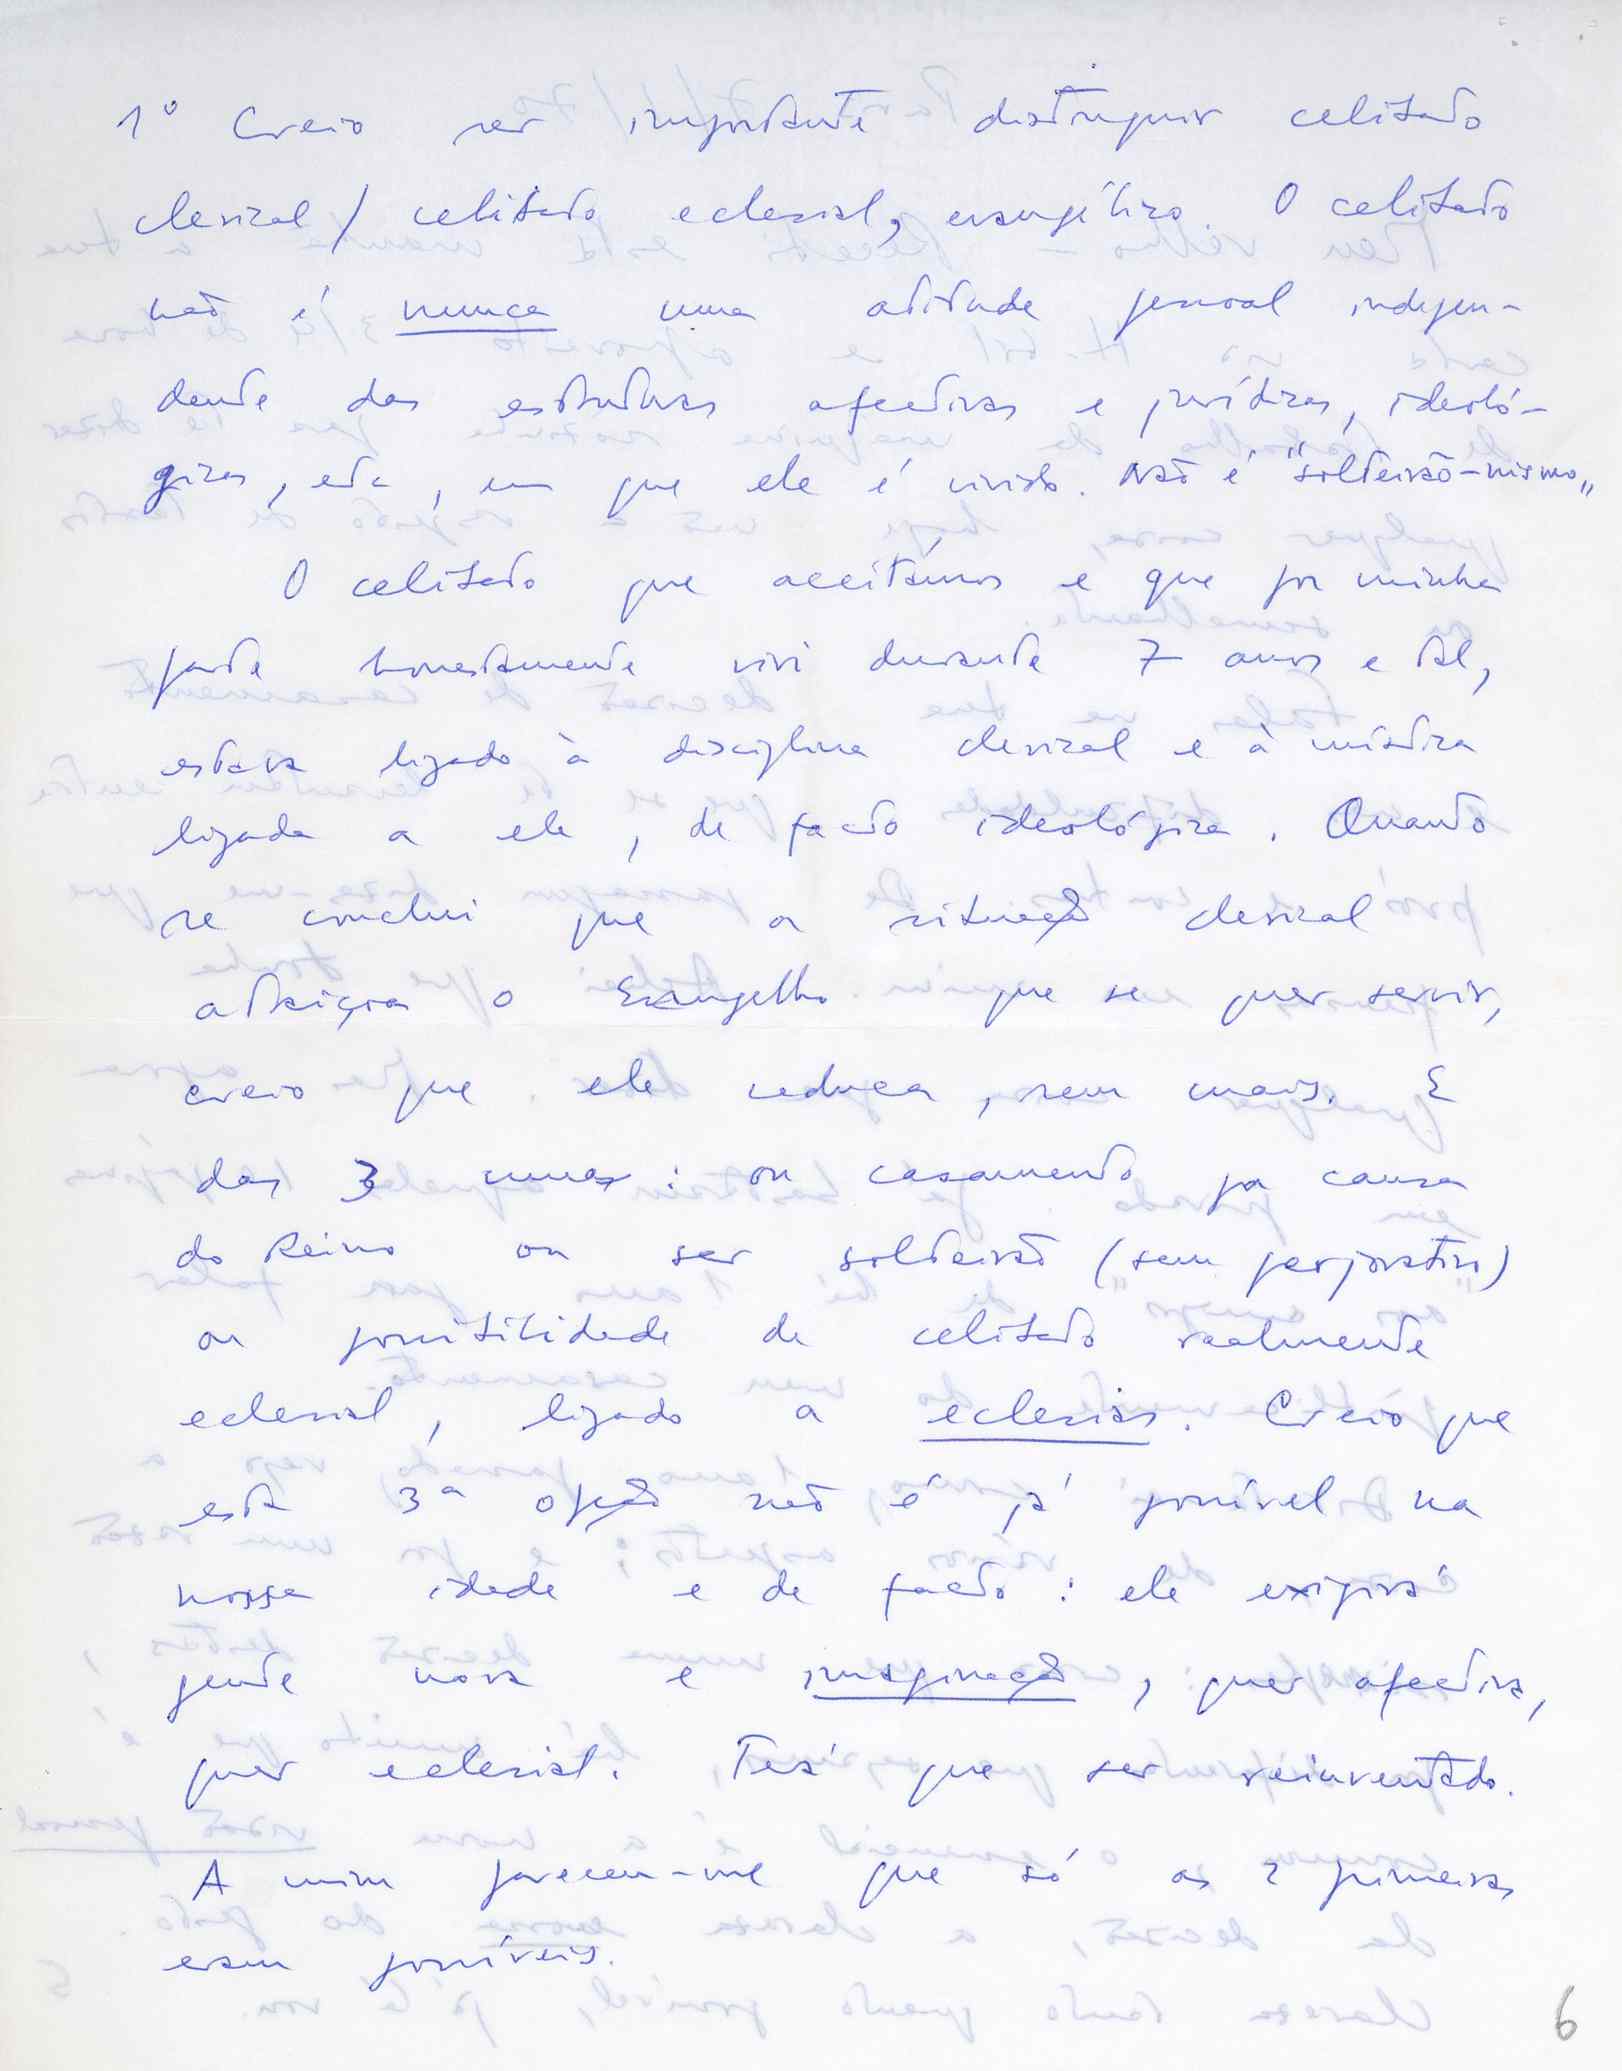 1º Creio ser importante distinguir celibato
clerical / celibato eclesial, evangélico. O celibato
não é nunca uma atitude pessoal indepen-
dente das estruturas afectivas e jurídicas, ideoló-
gicas, etc, em que ele é vivido. Não é "solteirão-nismo"
O celibato que aceitámos e que por minha
parte honestamente vivi durante 7 anos e tal,
estava ligado à disciplina clerical e à mística
ligada a ele, de facto ideológica. Quando
se conclui que a situação clerical
atraiçoa o Evangelho que se quer servir,
creio que ele caduca, sem mais. E
das 3 umas: ou casamento por causa
do Reino ou ser solteirão (sem perjorativo)
ou possibilidade de celibato realmente
eclesial, ligado a eclesias. Creio que
esta 3ª opção não é já possível na
nossa idade e de facto: ele exigirá
gente nova e imaginação, quer afectiva,
quer eclesial. Terá que ser reinventado.
A mim parecem-me que só as 2 primeiras
eram possíveis.
6